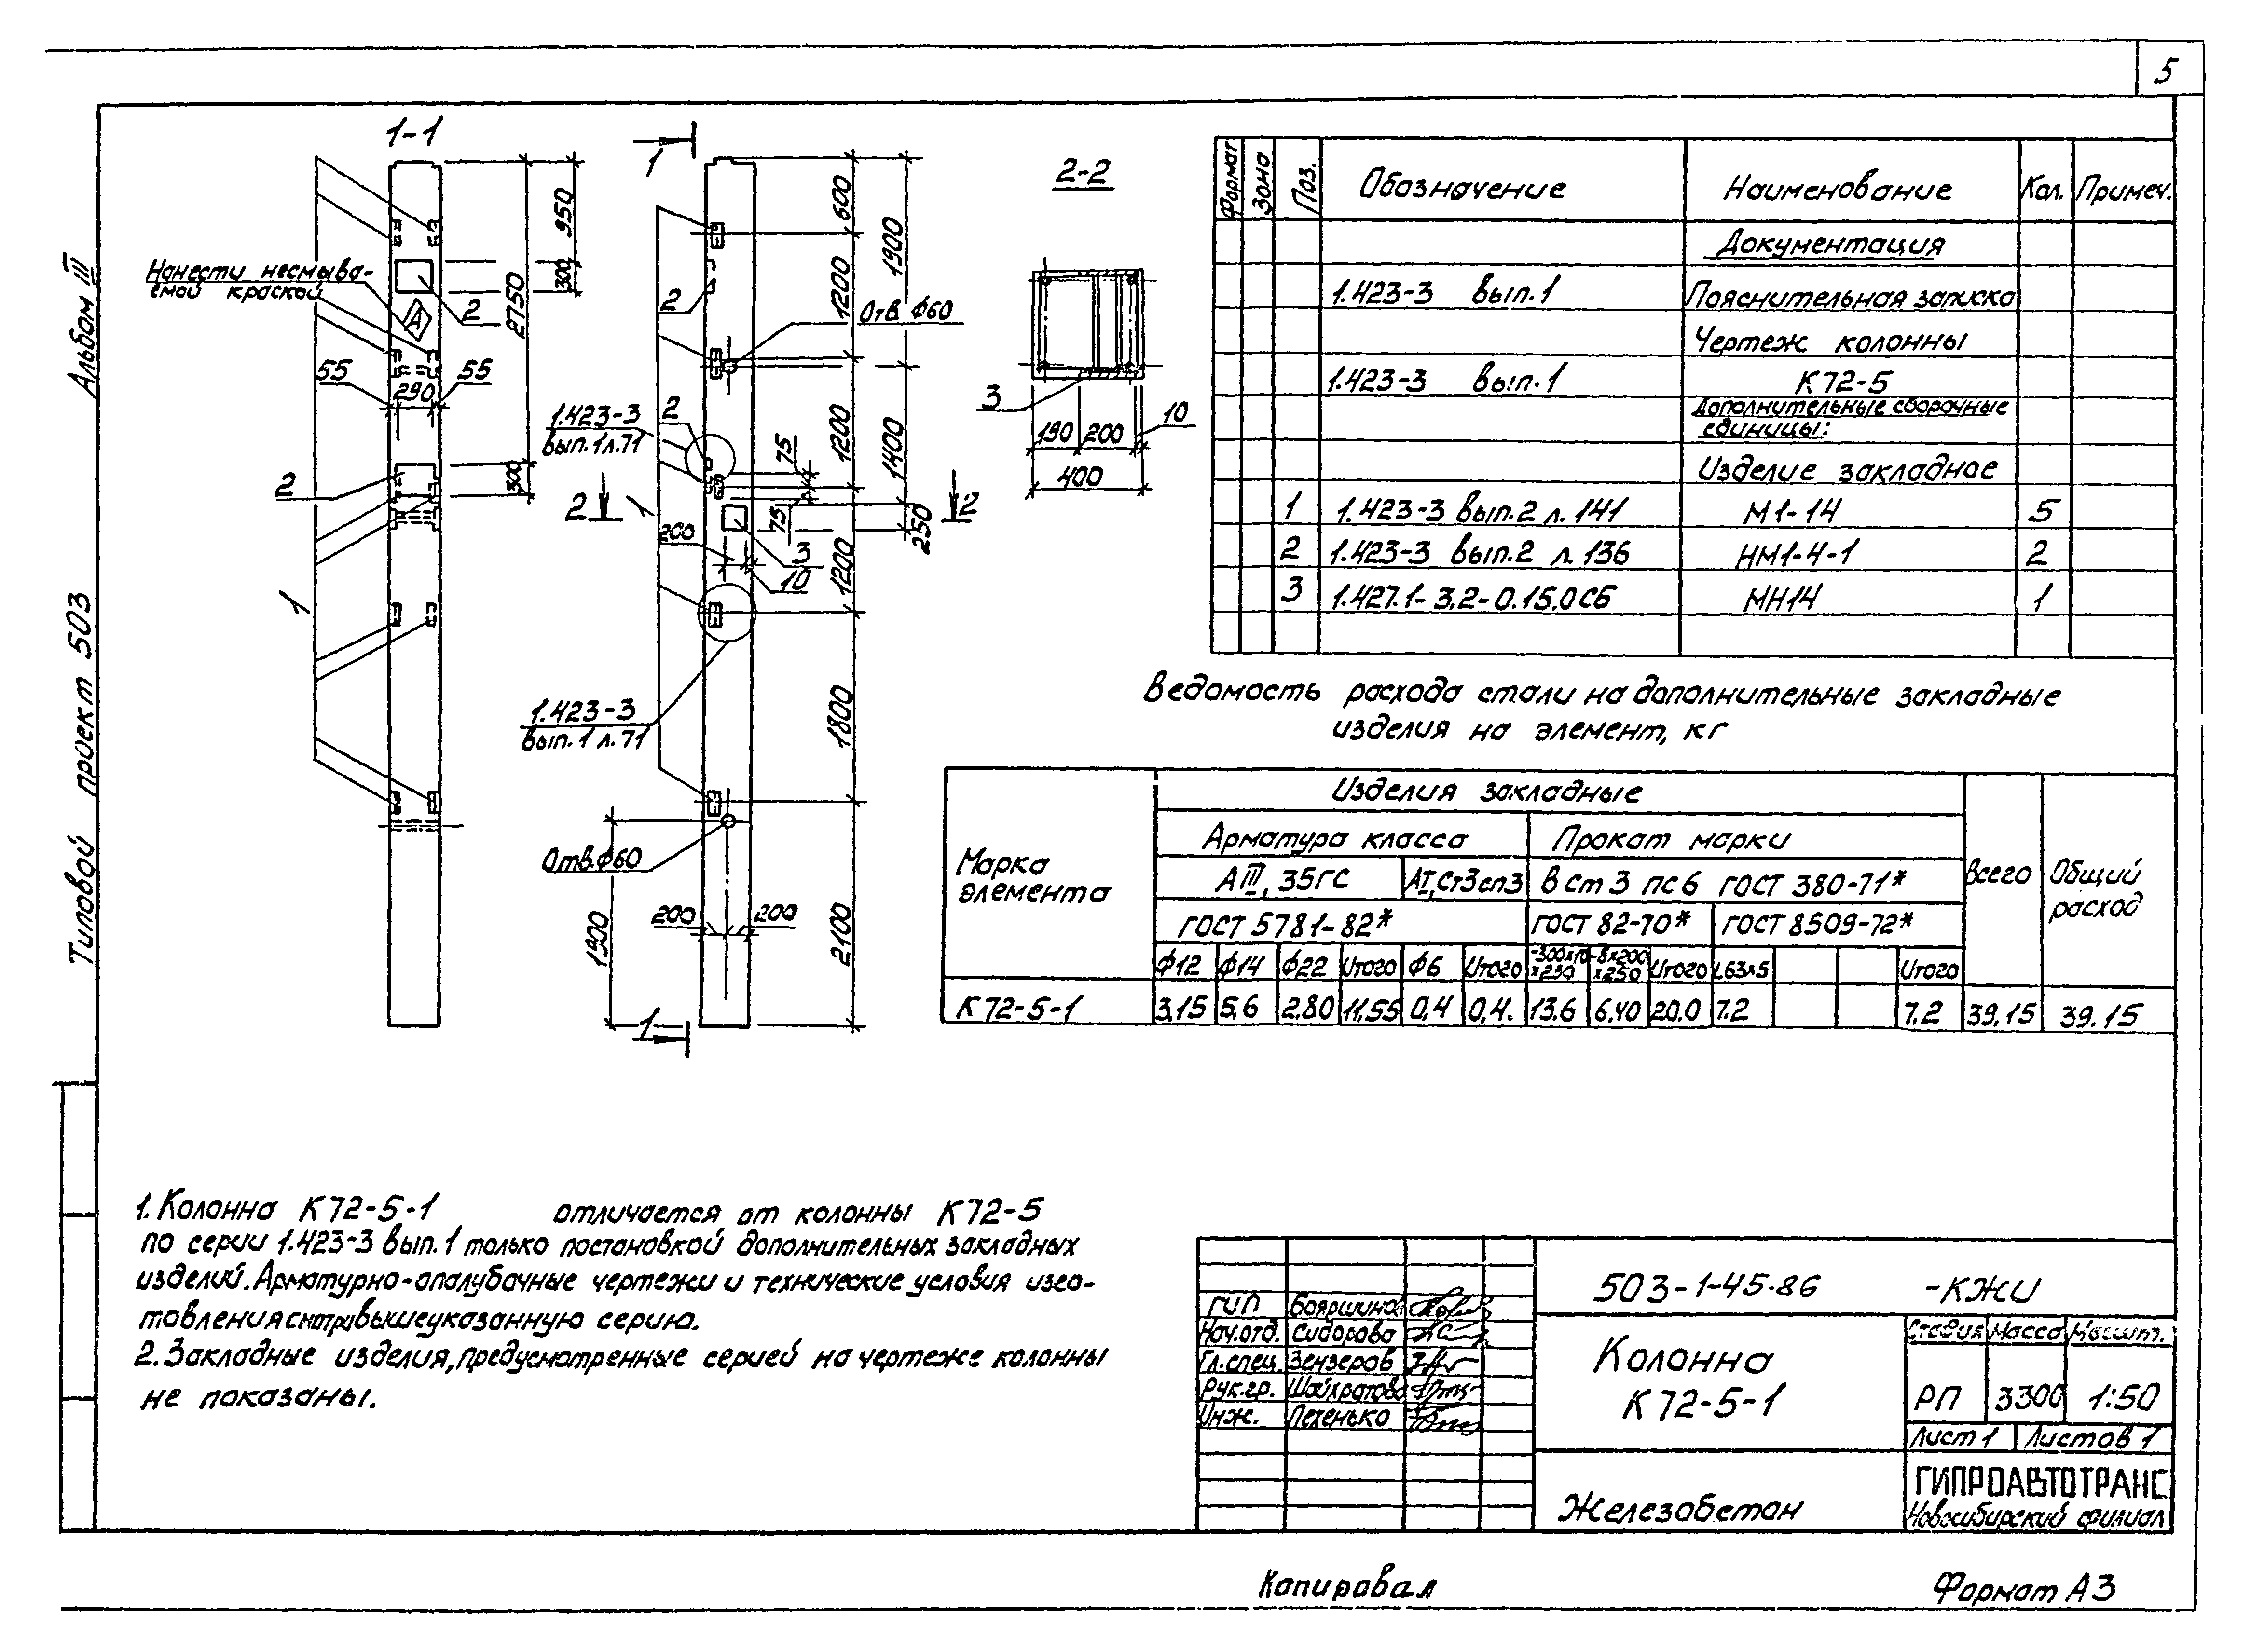 5
Альбом III
Типовой проект 503
1-1
Нанести несмыва-
емой краской
А
2
2
1
55
290
55
950
300
2750
300
1
1
2
2
1.423-3
вып.1 л.71
1.423-3
вып.1 л.71
Отв. ф60
Отв. ф60
2
2
1
3
10
200
75
75
600
1200
1200
1200
1800
2100
1900
1400
250
1900
200
200
1
2-2
3
190
200
10
400
Формат Зона Поз. Обозначение Наименование Кол. Примеч.
Документация
1.423-3 вып.1 Пояснительная записка
Чертеж колонны
1.423-3 вып.1 К72-5
Дополнительные сборочные
единицы:
Изделие закладное
1 1.423-3 вып.2 л.141 М1-14 5
2 1.423-3 вып.2 л.136 НМ1-4-1 2
3 1.427.1-3.2-0.15.0СБ МН14 1
Ведомость расхода стали на дополнительные закладные
изделия на элемент, кг
Марка элемента
Изделия закладные
Всего
Общий расход
Арматура класса Прокат марки
АIII, 35ГС АI, Ст3сп3 Вст3 пс6 ГОСТ 380-71*
ГОСТ 5781-82* ГОСТ 82-70* ГОСТ 8509-72*
ф12 ф14 ф22 Итого ф6 Итого -300х10х290 -8х200х250 Итого L63х5 Итого
К72-5-1 3,15 5,6 2.80 11,55 0,4 0,4. 13.6 6.40 20.0 7.2 7.2 39.15 39.15
1. Колонна К72-5-1 отличается от колонны К72-5
по серии 1.423-3 вып.1 только постановкой дополнительных закладных
изделий. Арматурно-опалубочные чертежи и технические условия изго-
товления смотри вышеуказанную серию.
2. Закладные изделия, предусмотренные серией на чертеже колонны
не показаны.
503-1-45.86 -КЖИ
ГИП Бояршинов
Нач.отд. Сидорова
Гл.спец. Зензеров
Рук.гр. Шайхратова
Инж. Пехенько
Колонна
К72-5-1
Стадия Масса Масшт.
РП 3300 1:50
Лист 1 Листов 1
Железобетон
ГИПРОАВТОТРАНС
Новосибирский филиал
Копировал
Формат А3